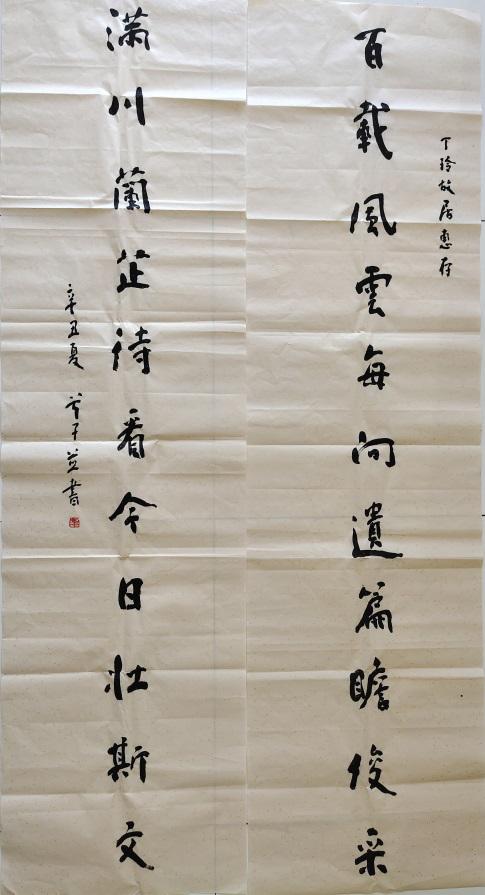 丁玲故居惠存
百載風雲每向遺篇瞻俊采
滿川蘭芷待看今日壯斯文
辛丑夏 子並書